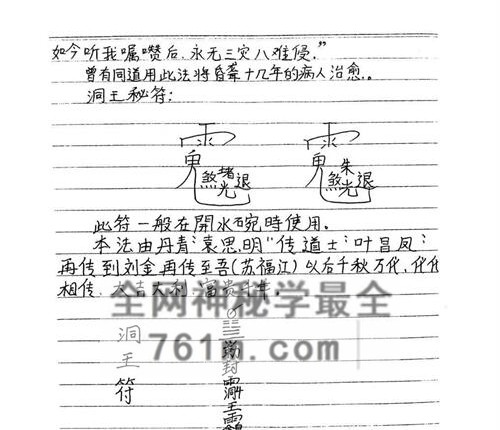 如今听我嘱囋后.永无三灾八难侵."
曾有同道用此法将昏聋十几年的病人治愈.。
洞王秘符:
煞堵光退
煞朱光退
此符一般在開水碗時使用。
本法由丹青;袁思明"传道士;叶昌凤;
再传到刘金再传至吾(苏福江)以后千秋万代,代代
相传.大吉大利,富贵千年。
全网神秘学最全
761m.com
洞王符
勅封